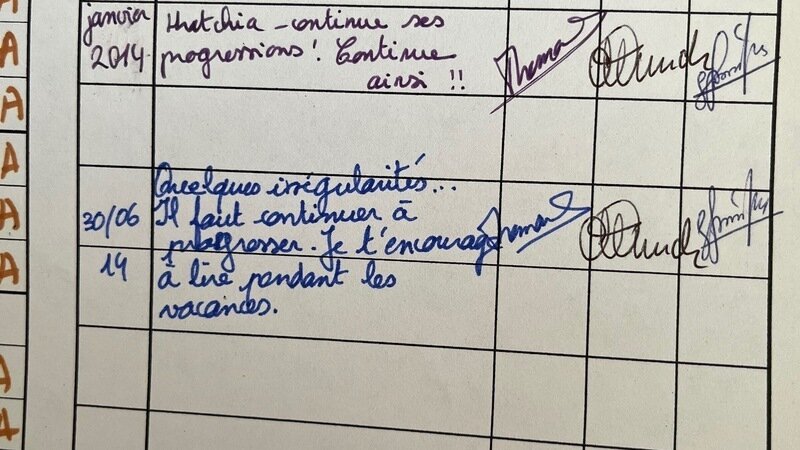 janvier
2014
Thatchia continue ses
progressions ! Continue
ainsi !!
30/06
14
Quelques irrégularités...
Il faut continuer à
progresser. Je t'encourage
à lire pendant les
vacances.
A
A
A
A
A
A
A
A